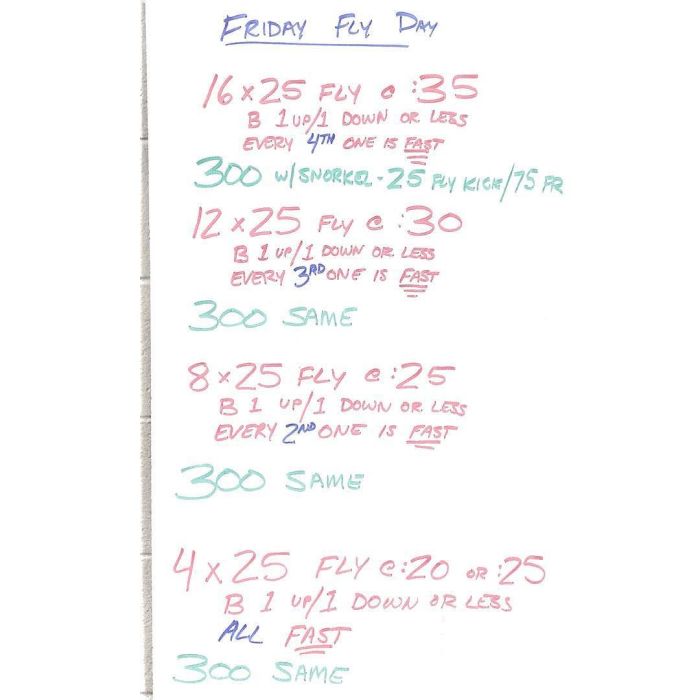 FRIDAY FLY DAY
16 x 25 FLY @ :35
B 1 UP/1 DOWN OR LESS
EVERY 4TH ONE IS FAST
300 W/SNORKEL - 25 FLY KICK/75 FR
12 x 25 FLY @ :30
B 1 UP/1 DOWN OR LESS
EVERY 3RD ONE IS FAST
300 SAME
8 x 25 FLY @ :25
B 1 UP/1 DOWN OR LESS
EVERY 2ND ONE IS FAST
300 SAME
4 x 25 FLY @ :20 OR :25
B 1 UP/1 DOWN OR LESS
ALL FAST
300 SAME